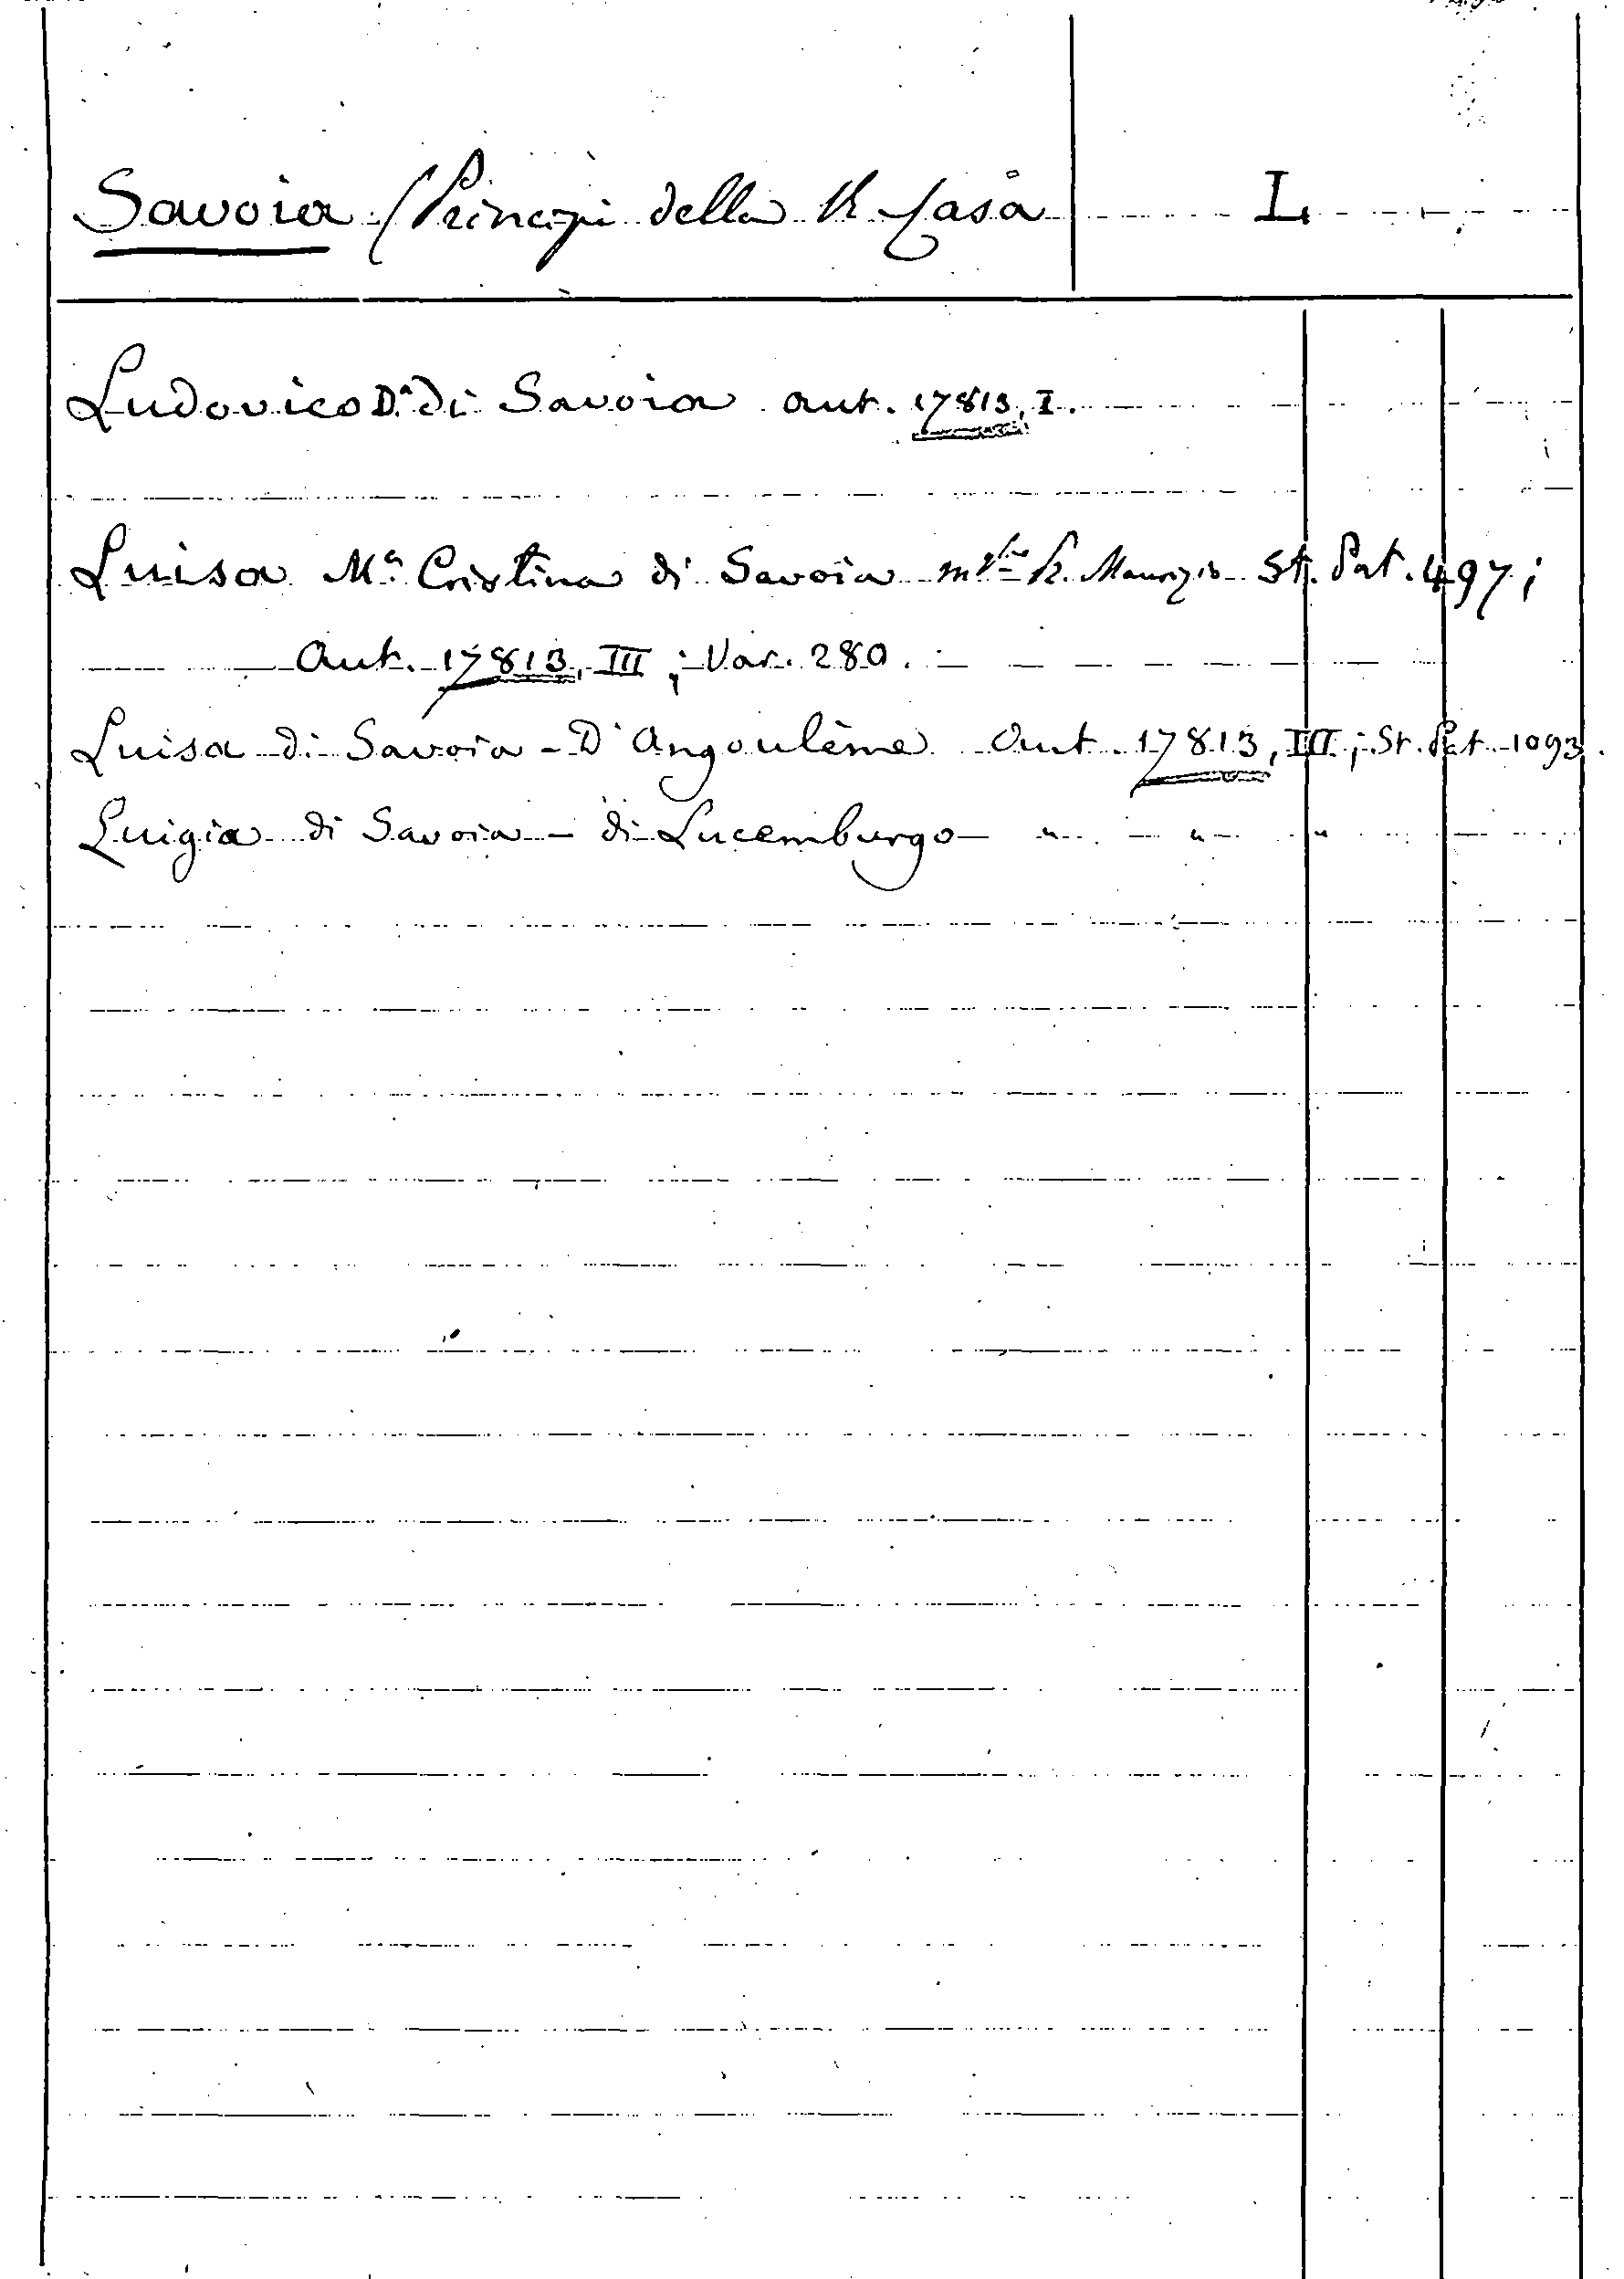 Savoia (Principi della R. Casa
L
Ludovico D.a di Savoia Aut. 17813, I.
Luisa M.a Cristina di Savoia Maurizio St. Pat. 497;
Aut. 17813, III; Var. 280.
Luisa di Savoia - D'Angoulême Aut. 17813, III; St. Pat. 1093.
Luigia di Savoia - di Lucemburgo - " - " - "